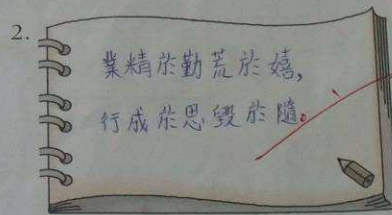 2.
業精於勤荒於嬉,
行成於思毀於隨。